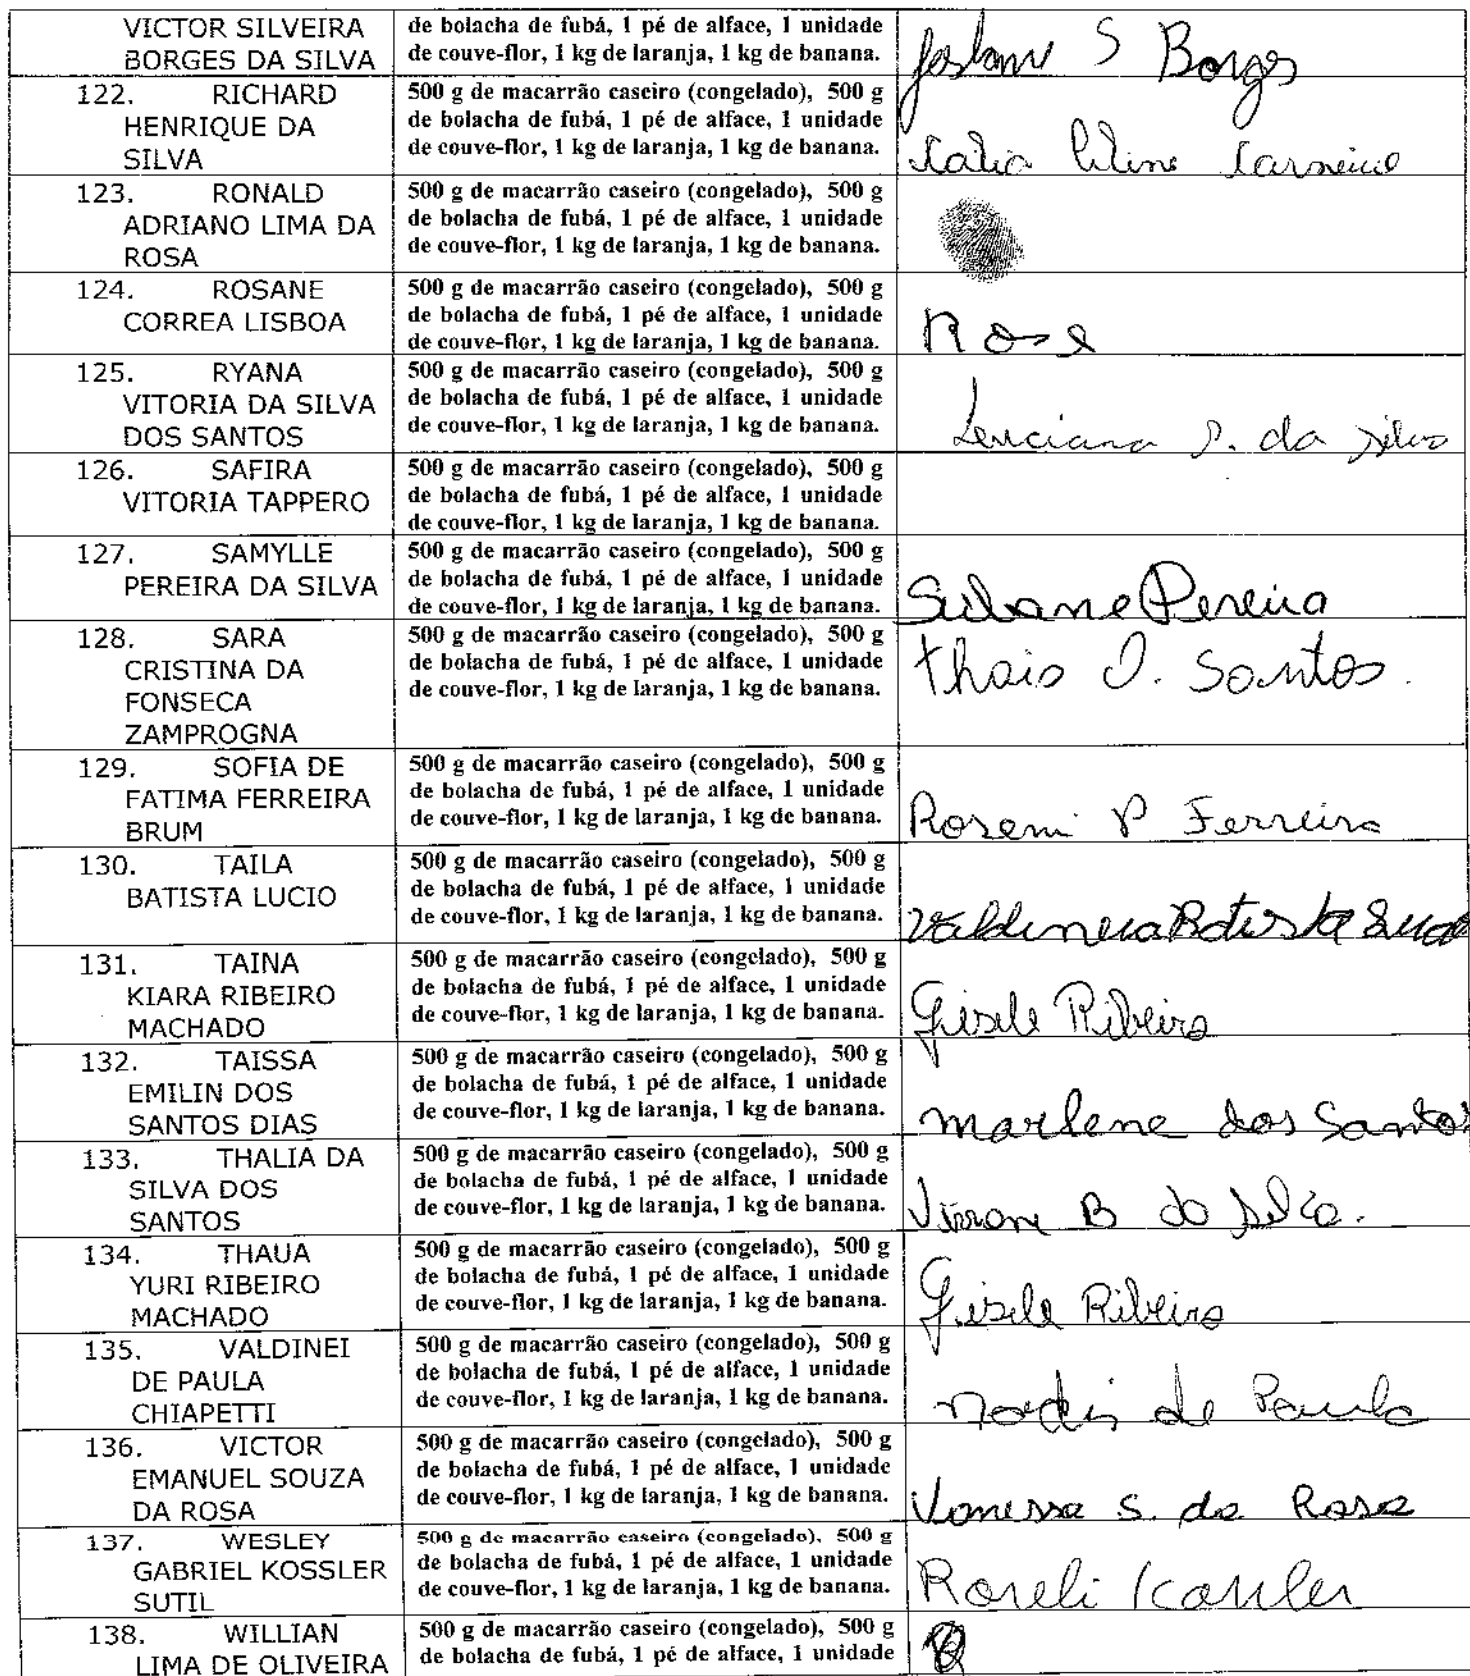 VICTOR SILVEIRA
BORGES DA SILVA
de bolacha de fubá, 1 pé de alface, 1 unidade
de couve-flor, 1 kg de laranja, 1 kg de banana.
S Borges
122. RICHARD
HENRIQUE DA
SILVA
500 g de macarrão caseiro (congelado), 500 g
de bolacha de fubá, 1 pé de alface, 1 unidade
de couve-flor, 1 kg de laranja, 1 kg de banana.
123. RONALD
ADRIANO LIMA DA
ROSA
500 g de macarrão caseiro (congelado), 500 g
de bolacha de fubá, 1 pé de alface, 1 unidade
de couve-flor, 1 kg de laranja, 1 kg de banana.
124. ROSANE
CORREA LISBOA
500 g de macarrão caseiro (congelado), 500 g
de bolacha de fubá, 1 pé de alface, 1 unidade
de couve-flor, 1 kg de laranja, 1 kg de banana.
Rose
125. RYANA
VITORIA DA SILVA
DOS SANTOS
500 g de macarrão caseiro (congelado), 500 g
de bolacha de fubá, 1 pé de alface, 1 unidade
de couve-flor, 1 kg de laranja, 1 kg de banana.
Luciana P. da Silva
126. SAFIRA
VITORIA TAPPERO
500 g de macarrão caseiro (congelado), 500 g
de bolacha de fubá, 1 pé de alface, 1 unidade
de couve-flor, 1 kg de laranja, 1 kg de banana.
127. SAMYLLE
PEREIRA DA SILVA
500 g de macarrão caseiro (congelado), 500 g
de bolacha de fubá, 1 pé de alface, 1 unidade
de couve-flor, 1 kg de laranja, 1 kg de banana.
Pereira
128. SARA
CRISTINA DA
FONSECA
ZAMPROGNA
500 g de macarrão caseiro (congelado), 500 g
de bolacha de fubá, 1 pé de alface, 1 unidade
de couve-flor, 1 kg de laranja, 1 kg de banana.
Thais O. Santos.
129. SOFIA DE
FATIMA FERREIRA
BRUM
500 g de macarrão caseiro (congelado), 500 g
de bolacha de fubá, 1 pé de alface, 1 unidade
de couve-flor, 1 kg de laranja, 1 kg de banana.
Roseni P Ferreira
130. TAILA
BATISTA LUCIO
500 g de macarrão caseiro (congelado), 500 g
de bolacha de fubá, 1 pé de alface, 1 unidade
de couve-flor, 1 kg de laranja, 1 kg de banana.
Batista
131. TAINA
KIARA RIBEIRO
MACHADO
500 g de macarrão caseiro (congelado), 500 g
de bolacha de fubá, 1 pé de alface, 1 unidade
de couve-flor, 1 kg de laranja, 1 kg de banana.
Gisele Ribeiro
132. TAISSA
EMILIN DOS
SANTOS DIAS
500 g de macarrão caseiro (congelado), 500 g
de bolacha de fubá, 1 pé de alface, 1 unidade
de couve-flor, 1 kg de laranja, 1 kg de banana.
marlene dos Santos
133. THALIA DA
SILVA DOS
SANTOS
500 g de macarrão caseiro (congelado), 500 g
de bolacha de fubá, 1 pé de alface, 1 unidade
de couve-flor, 1 kg de laranja, 1 kg de banana.
B da Silva.
134. THAUA
YURI RIBEIRO
MACHADO
500 g de macarrão caseiro (congelado), 500 g
de bolacha de fubá, 1 pé de alface, 1 unidade
de couve-flor, 1 kg de laranja, 1 kg de banana.
Gisele Ribeiro
135. VALDINEI
DE PAULA
CHIAPETTI
500 g de macarrão caseiro (congelado), 500 g
de bolacha de fubá, 1 pé de alface, 1 unidade
de couve-flor, 1 kg de laranja, 1 kg de banana.
de Paula
136. VICTOR
EMANUEL SOUZA
DA ROSA
500 g de macarrão caseiro (congelado), 500 g
de bolacha de fubá, 1 pé de alface, 1 unidade
de couve-flor, 1 kg de laranja, 1 kg de banana.
Vanessa S. da Rosa
137. WESLEY
GABRIEL KOSSLER
SUTIL
500 g de macarrão caseiro (congelado), 500 g
de bolacha de fubá, 1 pé de alface, 1 unidade
de couve-flor, 1 kg de laranja, 1 kg de banana.
Roseli
138. WILLIAN
LIMA DE OLIVEIRA
500 g de macarrão caseiro (congelado), 500 g
de bolacha de fubá, 1 pé de alface, 1 unidade